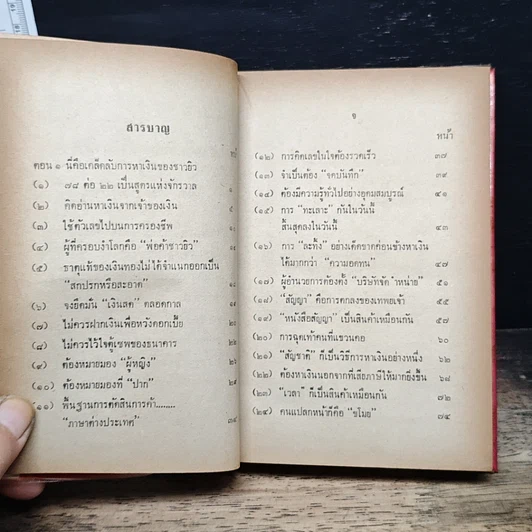 สารบาญ
หน้า
ตอน ๑ นี่คือเคล็ดลับการหาเงินของชาวยิว
(๑) ๗๘ ต่อ ๒๒ เป็นสูตรแห่งจักรวาล ๑
(๒) คิดอ่านหาเงินจากเจ้าของเงิน
(๓) ใช้ตัวเลขไปบนการครองชีพ
(๔) ผู้ที่ครอบงำโลกคือ “พ่อค้าชาวยิว”
(๕) ธาตุแท้ของเงินทองไม่ได้จำแนกออกเป็น
“สกปรกหรือสะอาด”
(๖) จงยึดมั่น “เงินสด” ตลอดกาล
(๗) ไม่ควรฝากเงินเพื่อหวังดอกเบี้ย
(๘) ไม่ควรไว้ใจตู้เซฟของธนาคาร
(๙) ต้องหมายมอง “ผู้หญิง”
(๑๐) ต้องหมายมองที่ “ปาก”
(๑๑) พื้นฐานการตัดสินการค้า........
“ภาษาต่างประเทศ” ๓๔
ข
หน้า
(๑๒) การคิดเลขในใจต้องรวดเร็ว ๓๗
(๑๓) จำเป็นต้อง “จดบันทึก” ๓๙
(๑๔) ต้องมีความรู้ทั่วไปอย่างอุดมสมบูรณ์ ๔๑
(๑๕) การ “ทะเลาะ” กันในวันนี้
สิ้นสุดลงในวันนี้ ๔๓
(๑๖) การ “ละทิ้ง” อย่างเด็ดขาดก่อนช้างหาเงิน
ได้มากกว่า “ความอดทน” ๔๗
(๑๗) ผู้อำนวยการต้องตั้ง “บริษัทจัด ‘หน่าย” ๕๑
(๑๘) “สัญญา” คือการตกลงของเทพเจ้า ๕๕
(๑๙) “หนังสือสัญญา” เป็นสินค้าเหมือนกัน ๕๗
(๒๐) การฉุดเท้าคนที่แขวนคอ ๖๐
(๒๑) “สัญชาติ” ก็เป็นวิธีการหาเงินอย่างหนึ่ง ๖๒
(๒๒) ต้องหาเงินนอกจากที่เสียภาษีให้มากยิ่งขึ้น ๖๘
(๒๓) “เวลา” ก็เป็นสินค้าเหมือนกัน ๗๒
(๒๔) คนแปลกหน้าก็คือ “ขโมย” ๗๕